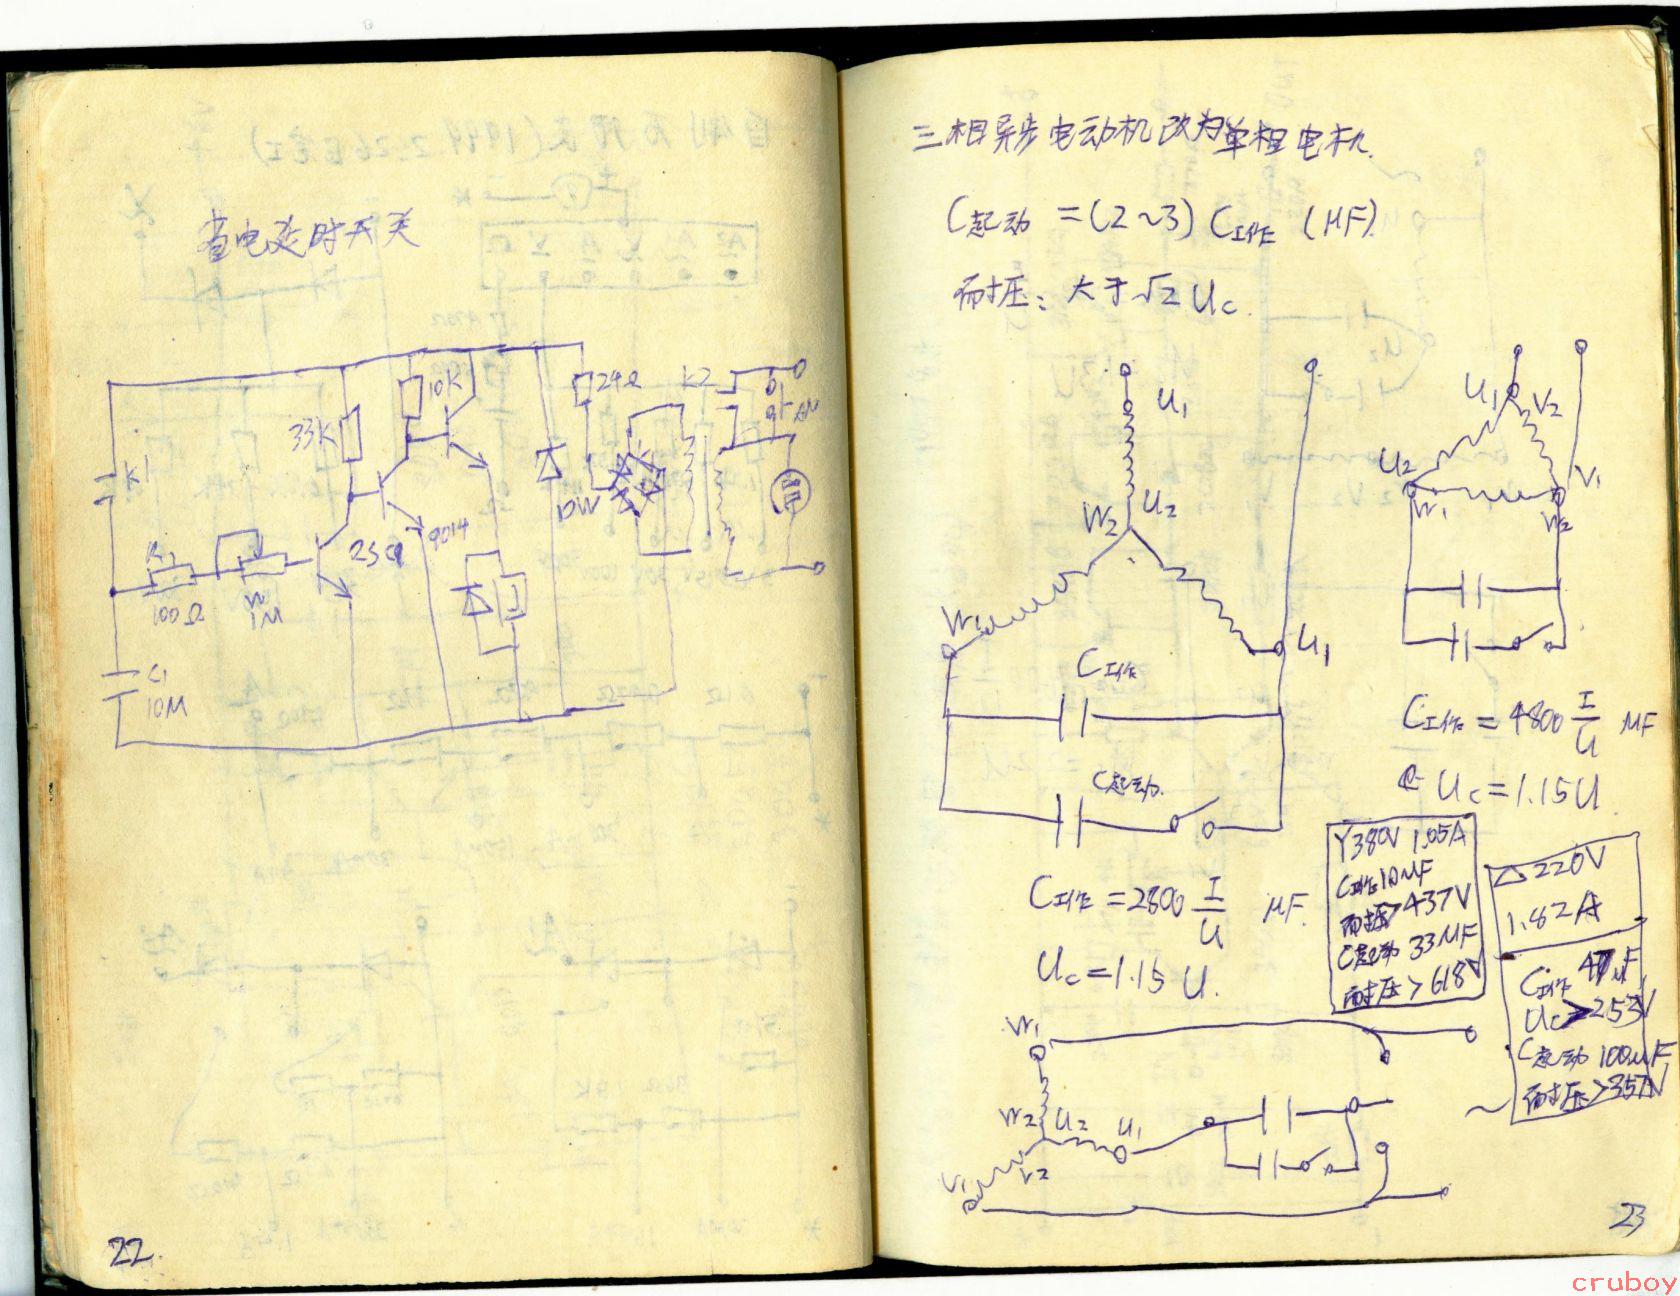 省电延时开关
33K
10K
24Ω
K2
K1
DW
9014
R1
100Ω
W
1M
J
C1
10M
22.
三相异步电动机改为单相电机.
C起动 =(2~3) C工作 (μF)
耐压: 大于√2 Uc.
U1
U2
W2
W1
U1
C工作
C起动.
C工作 = 2800 I/U μF.
Uc = 1.15 U.
U1 V2
U2 V1
W1 W2
C工作 = 4800 I/U μF
Uc = 1.15U
Y380V 1.05A
C工作10μF
耐压>437V
C起动 33μF
耐压>618V
△220V
1.82A
C工作 47μF
Uc>253V
C起动 100μF
耐压>357V
W1
W2 U2 U1
V1 V2
~
23
cruboy